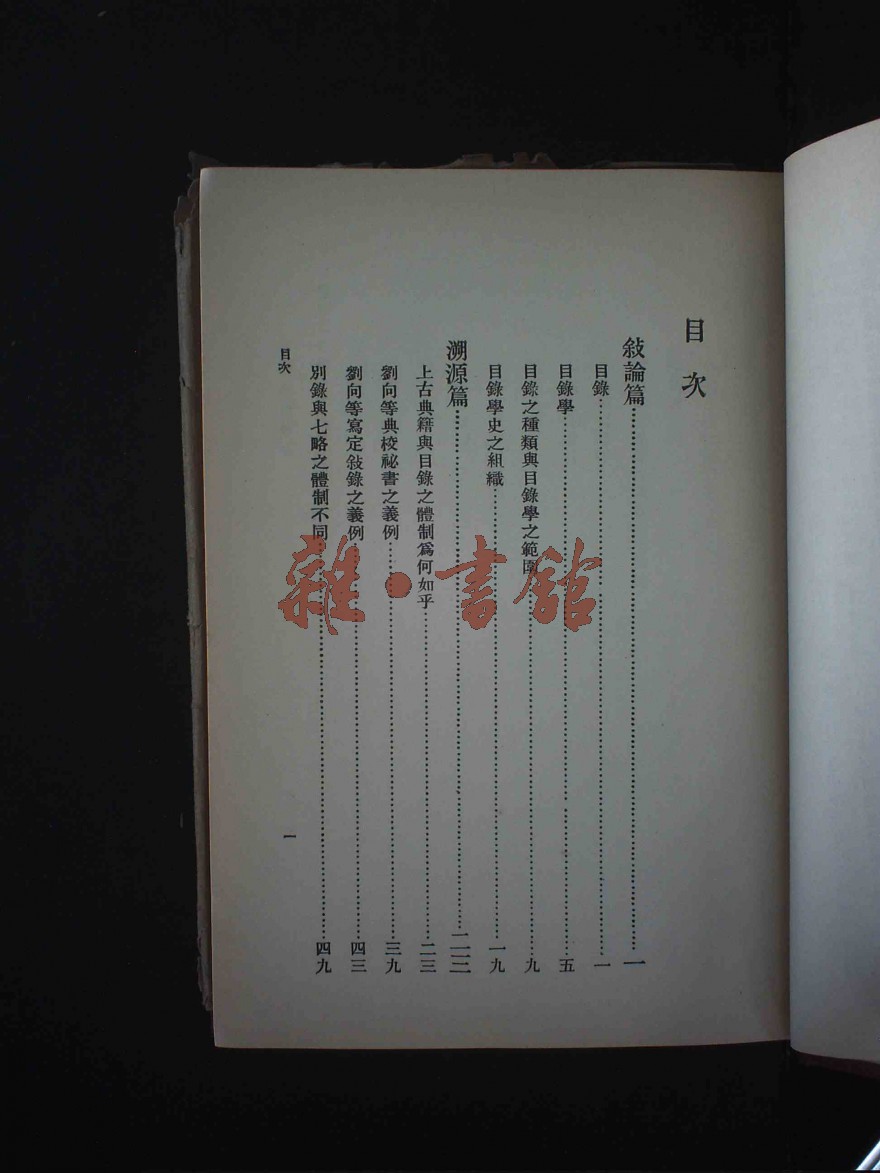 目次
敍論篇…一
目錄…一
目錄學…五
目錄之種類與目錄學之範圍…九
目錄學史之組織…一九
溯源篇…二三
上古典籍與目錄之體制爲何如乎…二三
劉向等典校祕書之義例…三九
劉向等寫定敍錄之義例…四三
別錄與七略之體制不同…四九
目次
一
雜·書館